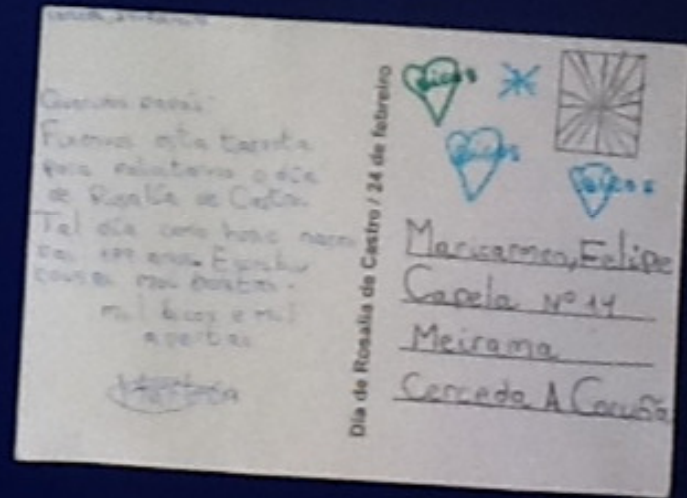 Queridos papás:
Fixemos esta tarxeta
para celebrar o día
de Rosalía de Castro.
Tal día como hoxe naceu
Escribiu
cousas moi bonitas.
mil bicos e mil
apertas
Día de Rosalía de Castro / 24 de febreiro
bicos
bicos
bicos
Maricarmen, Felipe
Capela Nº 14
Meirama
Cerceda A Coruña